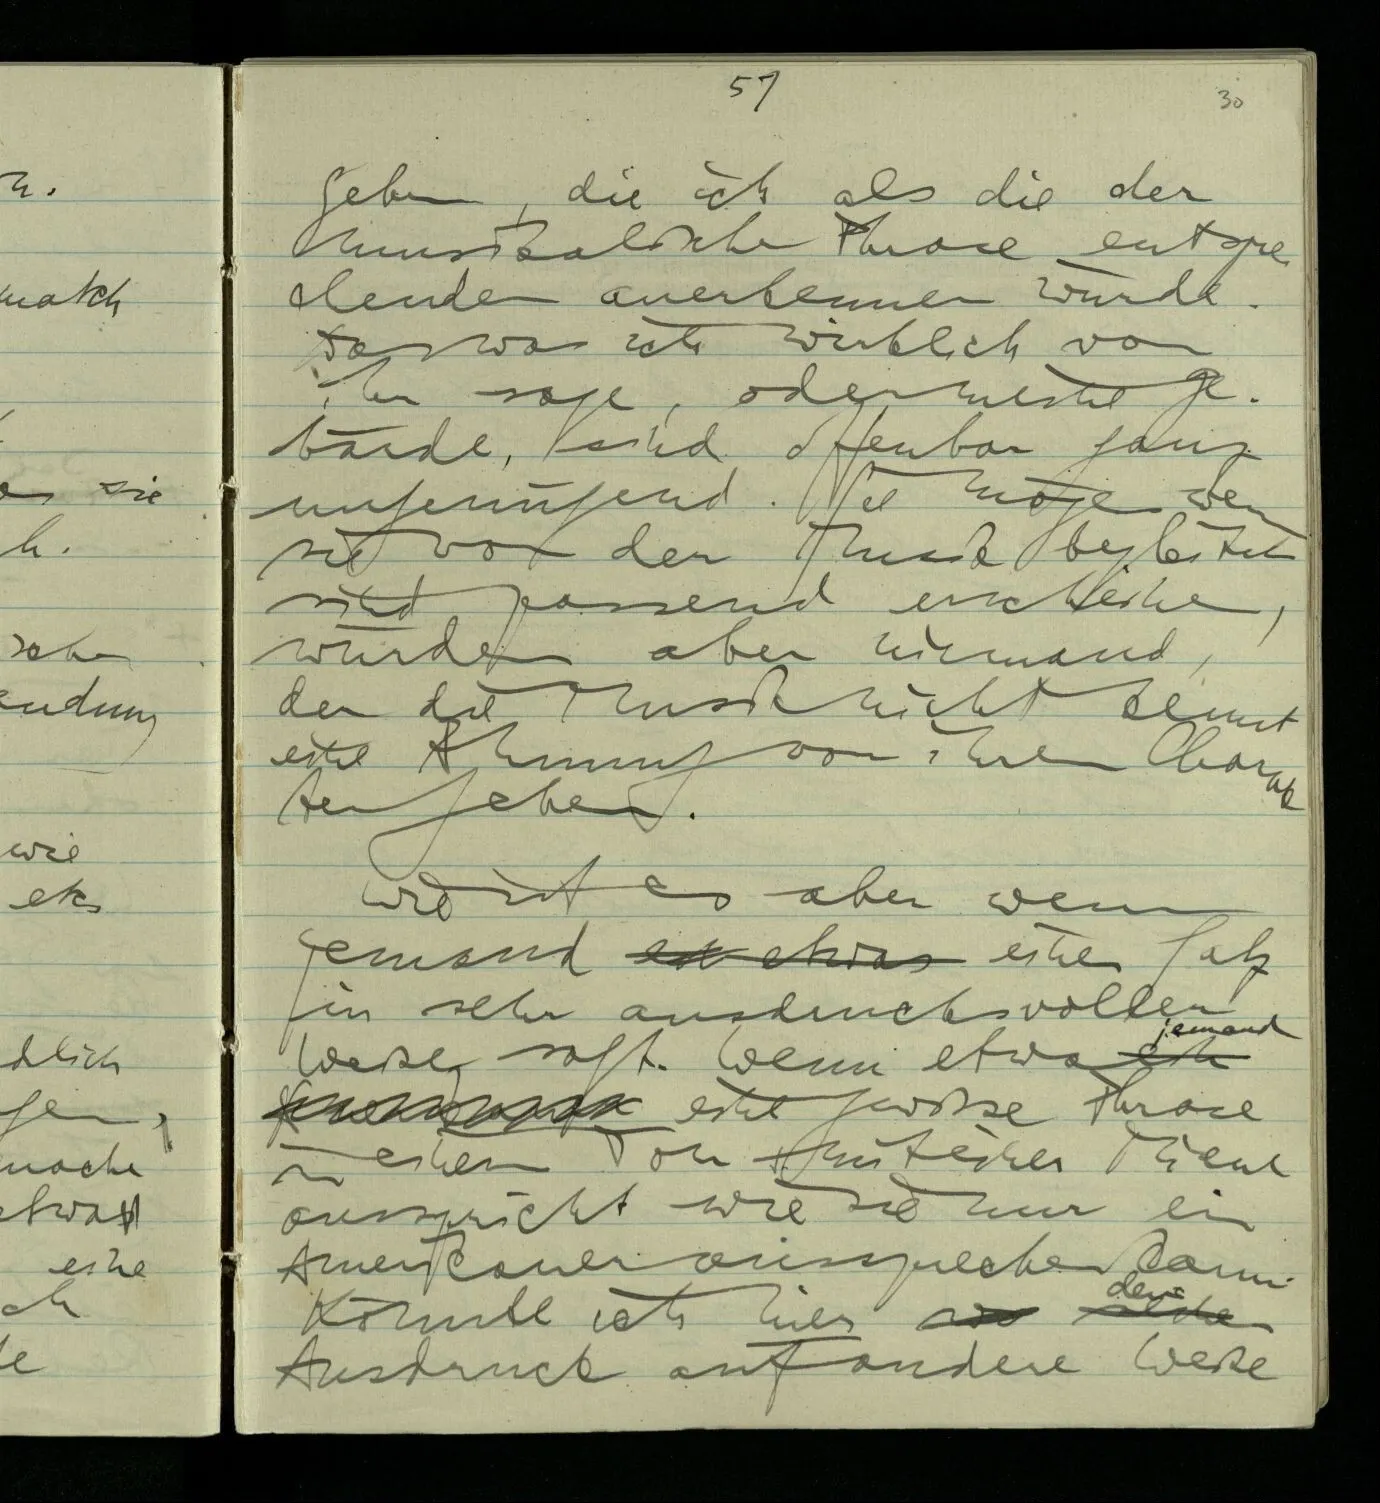 57
30
geben, die ich als die der
musikalischen Phrase entspre
chenden anerkennen würde.
Das was ich wirklich von
ihr sage, oder meine Ge-
bärde, sind offenbar ganz
ungenügend. Sie mögen wenn
sie von der Musik begleitet
sind passend erscheinen,
würden aber niemand,
der die Musik nicht kennt
eine Ahnung von ihrem Charak
ter geben.
Wie ist es aber wenn
jemand etwas einen Satz
in sehr ausdrucksvoller
Weise sagt. Wenn etwa ein jemand
eine gewisse Phrase
in einem Ton mit einer Miene
ausspricht wie sie nur ein
Amerikaner aussprechen kann.
Könnte ich hier den
Ausdruck auf andere Weise
n.
match
sie
h.
wie
etc
dlich
gen,
mache
etwas
eine
ch